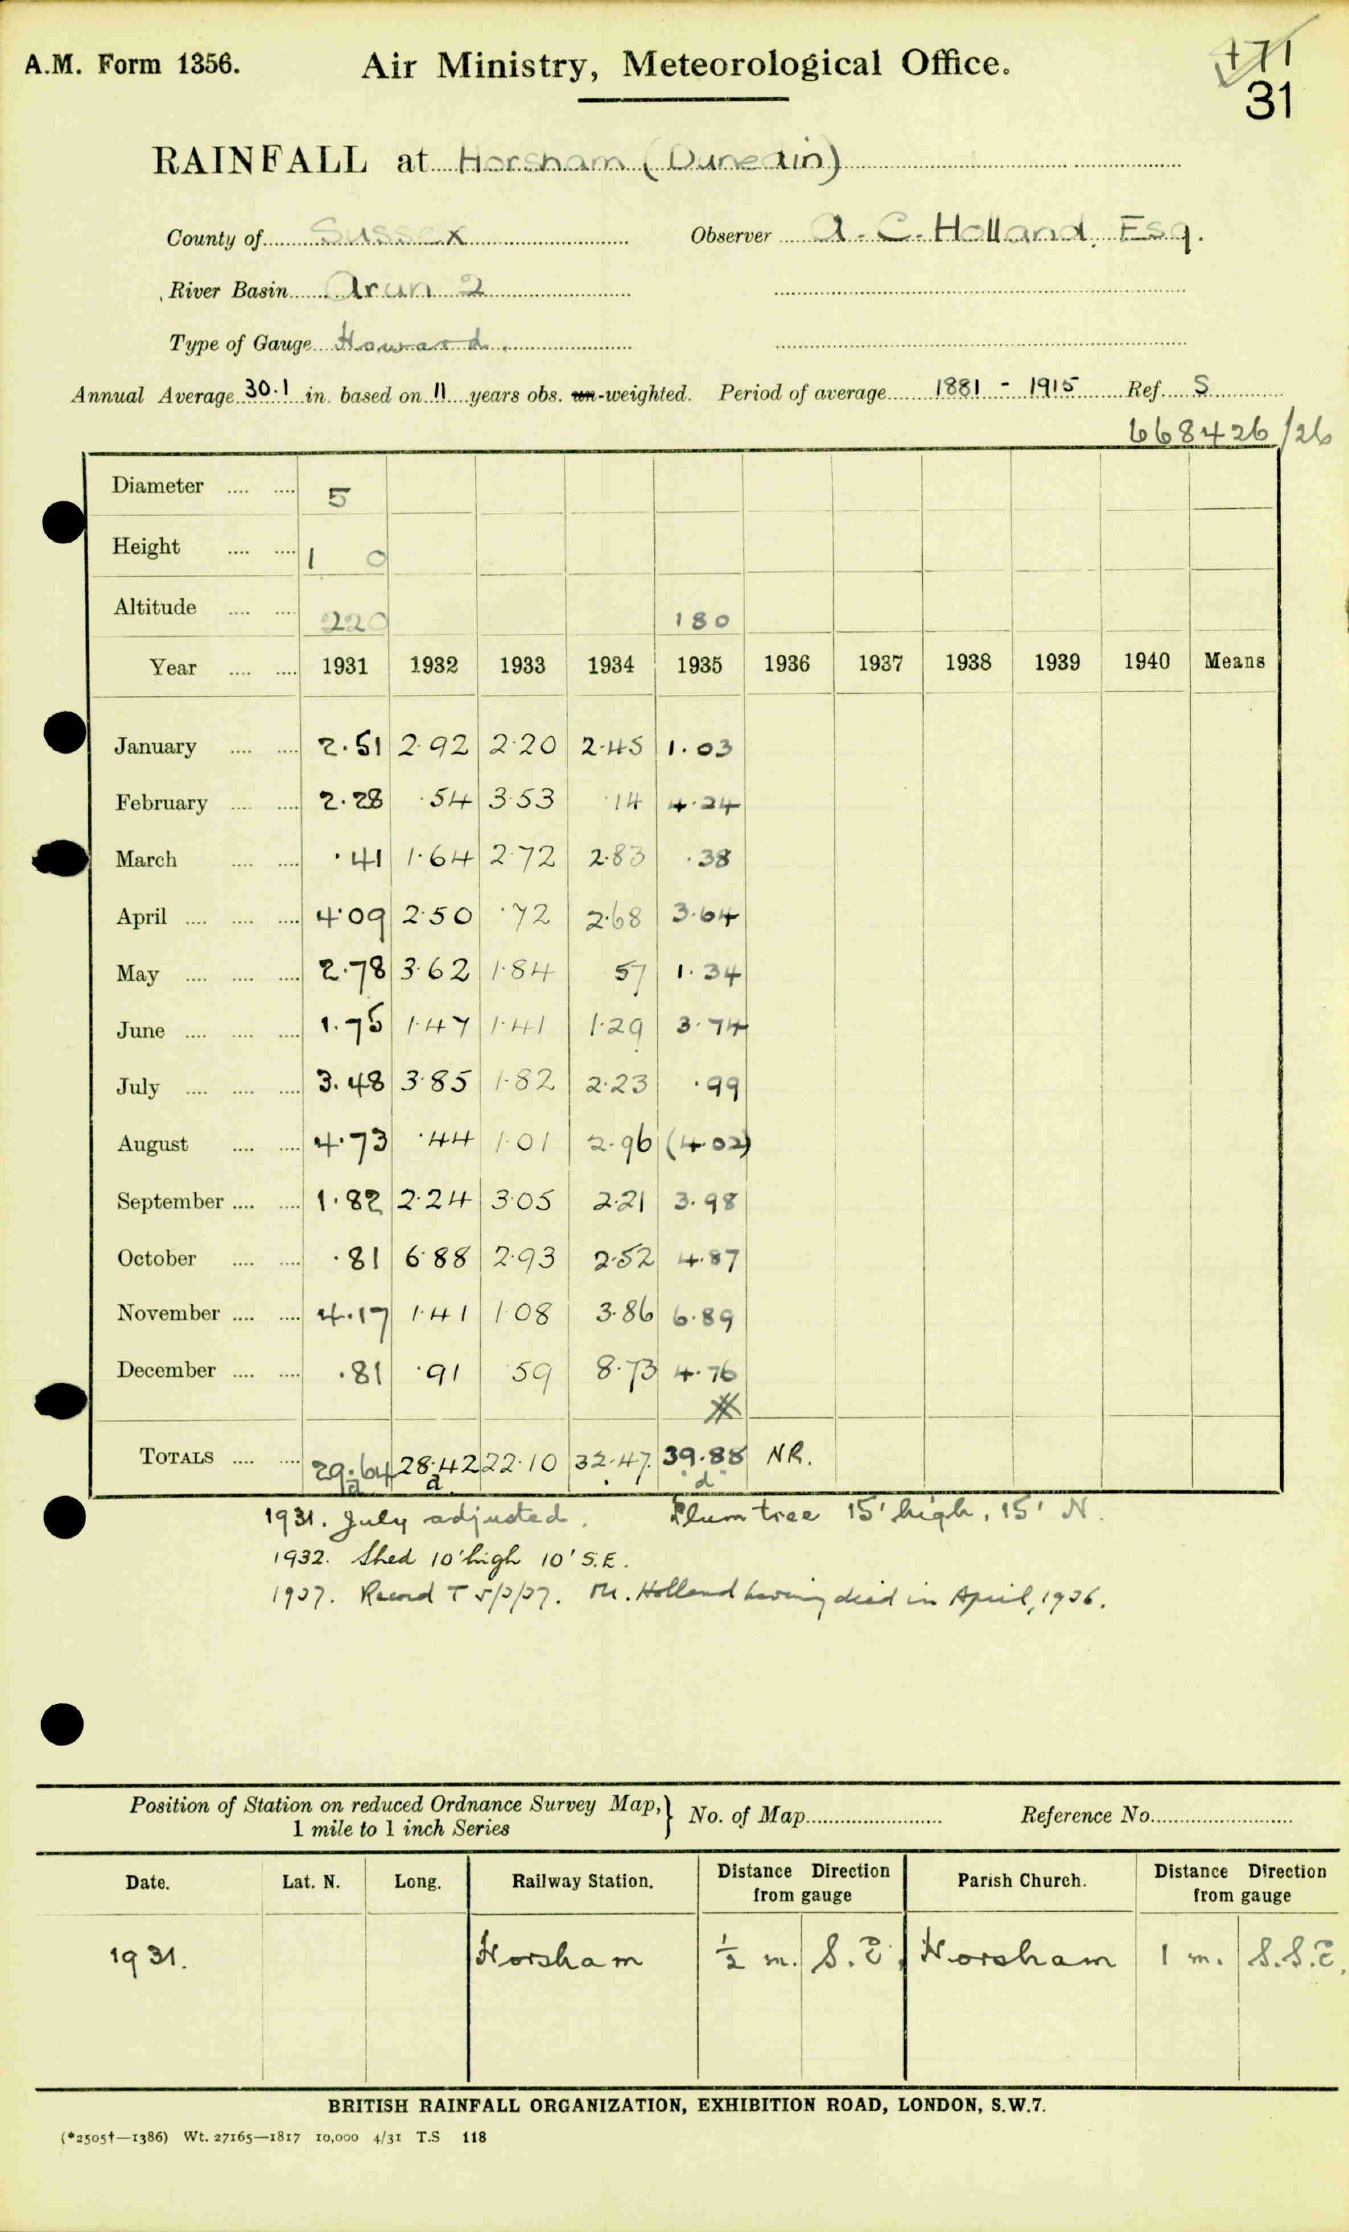 A.M. Form 1356.
Air Ministry, Meteorological Office.
171
31
RAINFALL at Horsham (Dunedin)
County of Sussex Observer A. C. Holland, Esq.
River Basin Arun 2
Type of Gauge Howard.
Annual Average 30.1 in. based on 11 years obs. un-weighted. Period of average 1881 - 1915 Ref. S
668426/26
Diameter .... .... 5
Height .... .... 1 0
Altitude .... .... 220 180
Year .... .... 1931 1932 1933 1934 1935 1936 1937 1938 1939 1940 Means
January .... .... 2.51 2.92 2.20 2.45 1.03
February .... .... 2.28 .54 3.53 .14 4.24
March .... .... .41 1.64 2.72 2.83 .38
April .... .... .... 4.09 2.50 .72 2.68 3.64
May .... .... .... 2.78 3.62 1.84 57 1.34
June .... .... .... 1.75 1.47 1.41 1.29 3.74
July .... .... .... 3.48 3.85 1.82 2.23 .99
August .... .... 4.73 .44 1.01 2.96 (4.02)
September .... .... 1.82 2.24 3.05 2.21 3.98
October .... .... .81 6.88 2.93 2.52 4.87
November .... .... 4.17 1.41 1.08 3.86 6.89
December .... .... .81 .91 59 8.73 4.76
TOTALS .... .... 29.64 28.42 22.10 32.47 39.88 NR.
a a "d"
1931. July adjusted. Plum tree 15' high, 15' N.
1932. Shed 10' high 10' S.E.
1937. Record T 5/3/37. Mr. Holland having died in April, 1936.
Position of Station on reduced Ordnance Survey Map,} No. of Map Reference No.
1 mile to 1 inch Series
Date. Lat. N. Long. Railway Station. Distance Direction from gauge Parish Church. Distance Direction from gauge
1931. Horsham ½ m. S.E. Horsham 1 m. S.S.E.
BRITISH RAINFALL ORGANIZATION, EXHIBITION ROAD, LONDON, S.W.7.
(*2505†—1386) Wt. 27165—1817 10,000 4/31 T.S 118